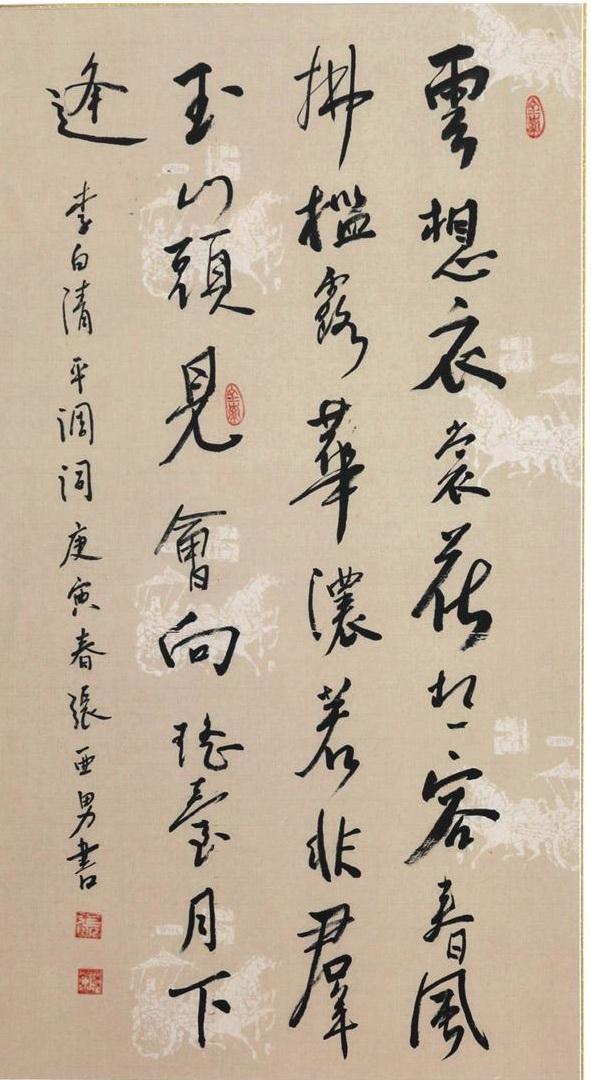 雲想衣裳花想容春風
拂檻露華濃若非羣
玉山頭見會向瑤臺月下
逢 李白清平調詞庚寅春張亞男書